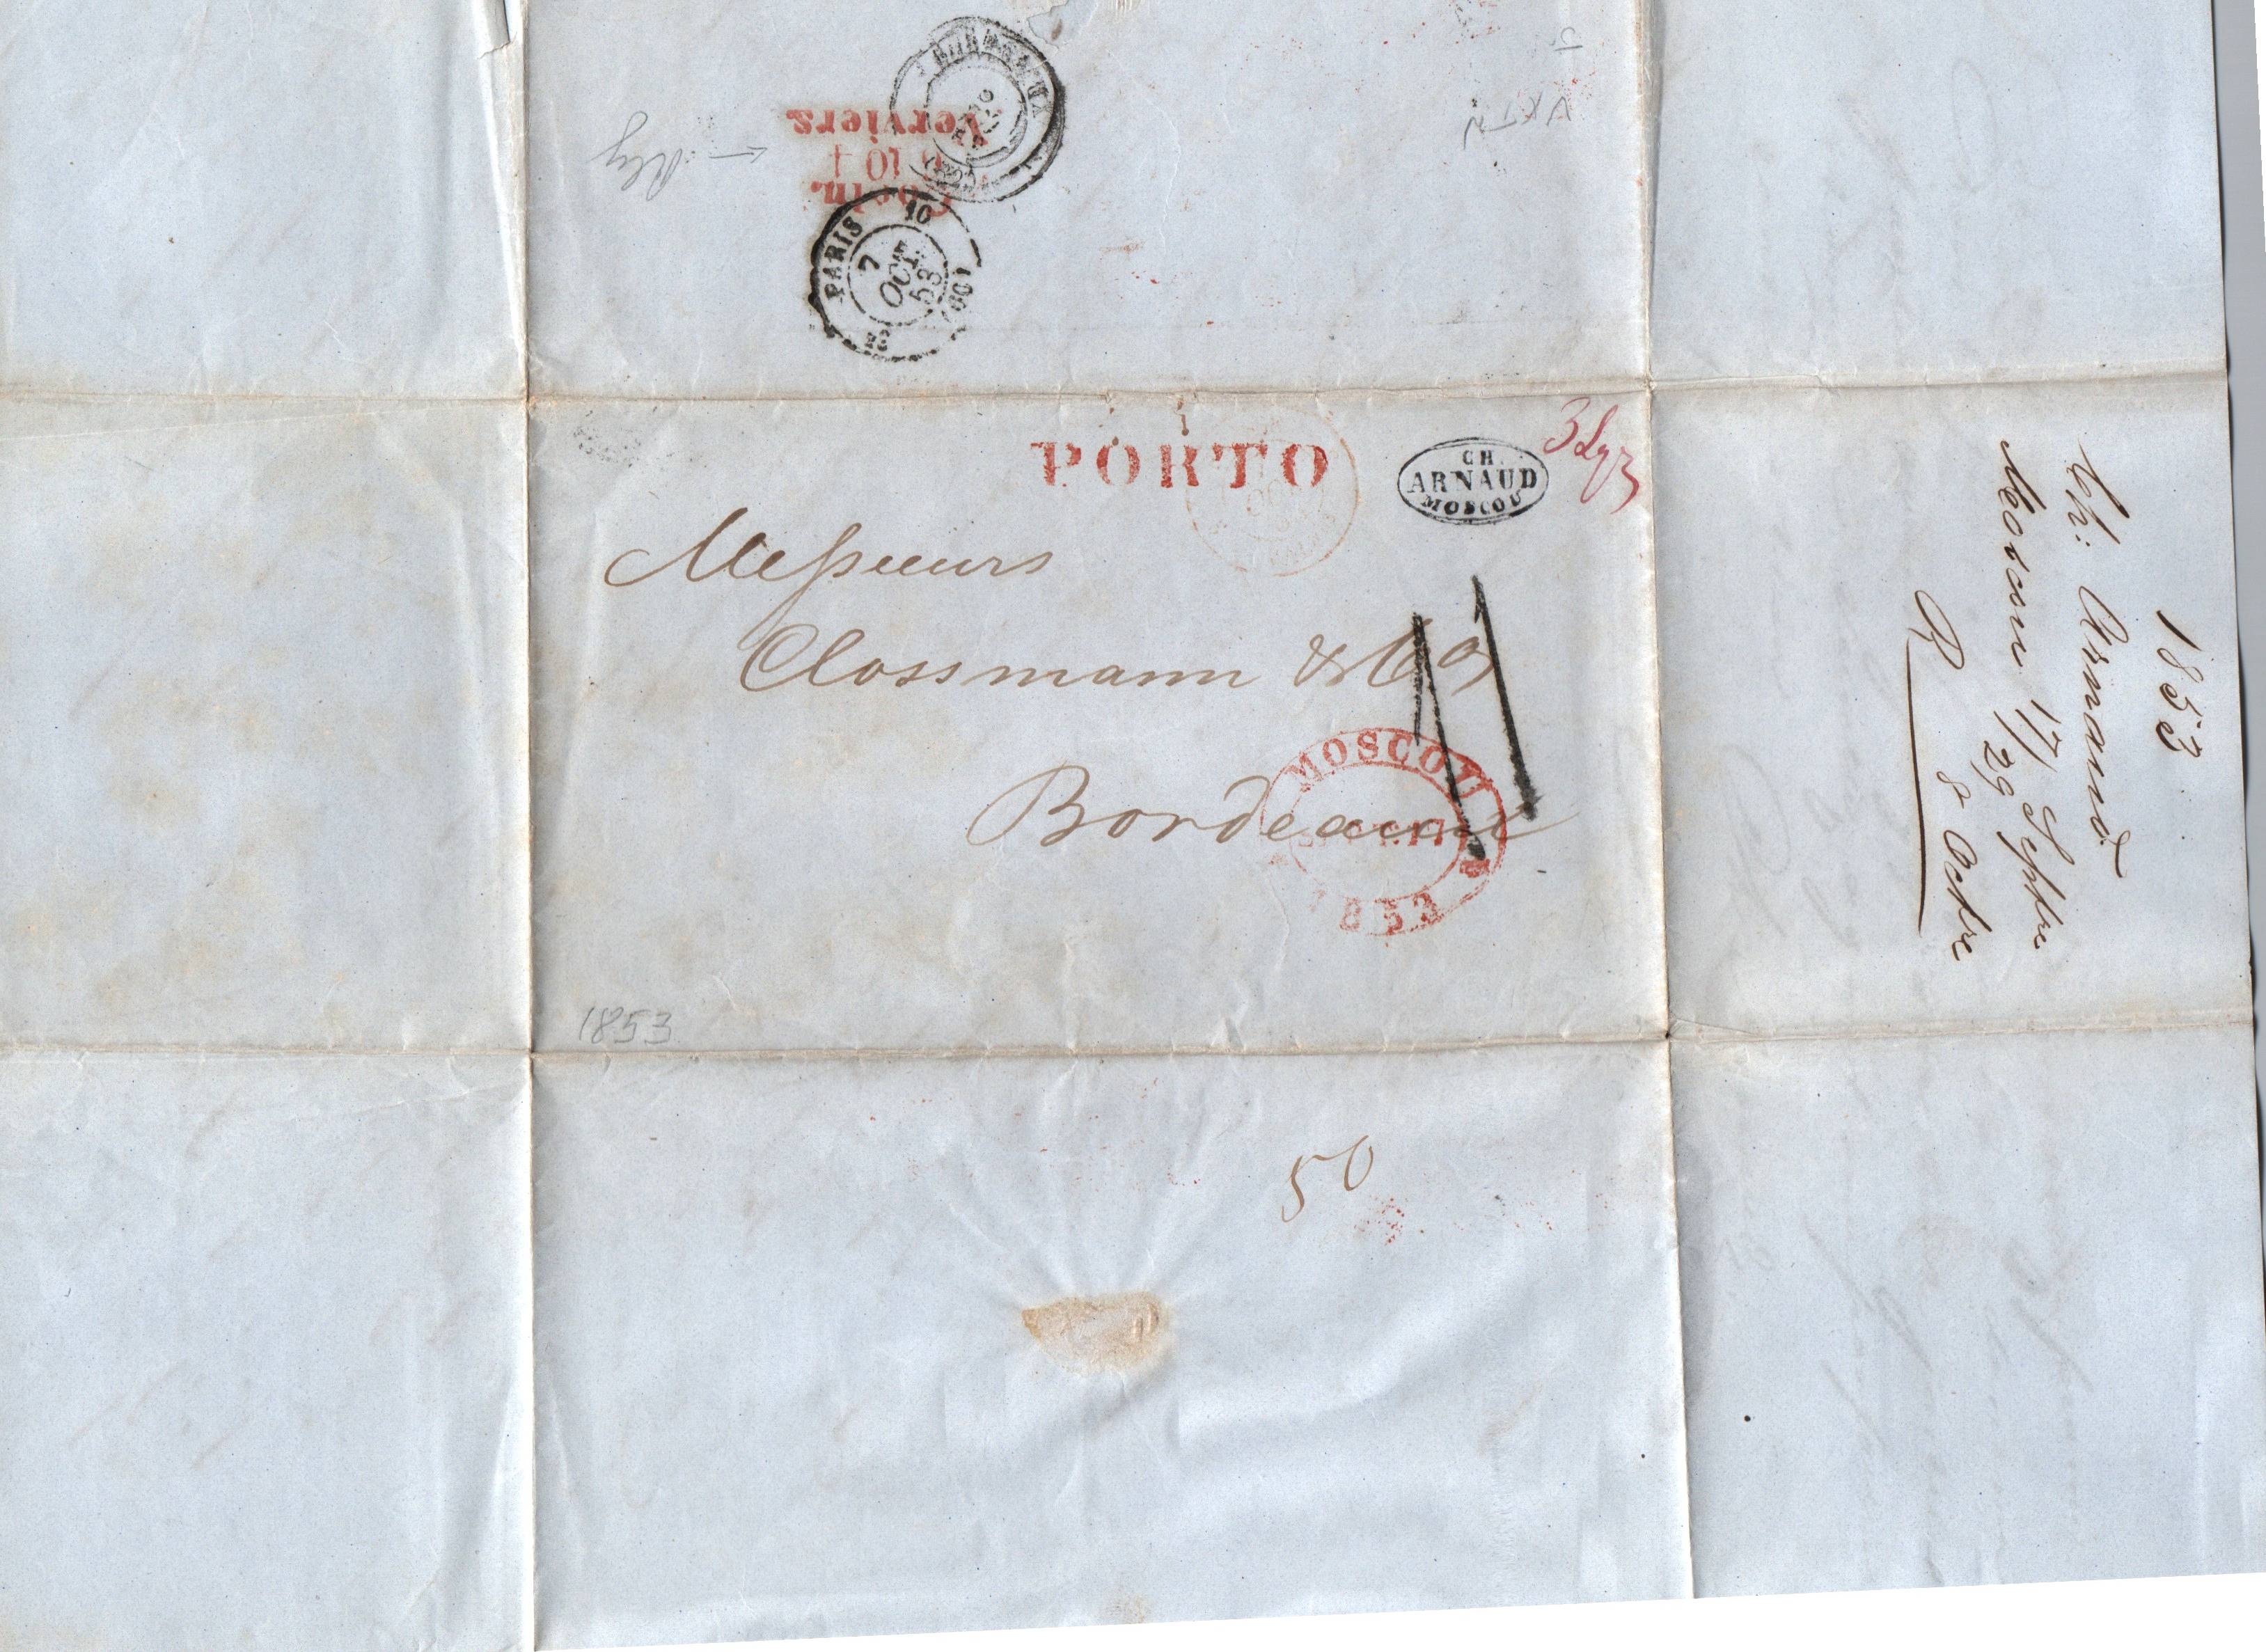 BORDEAUX
Verviers
10
Coeln.
PARIS
10
7
OCT.
53
(60)
PORTO
CH.
ARNAUD
MOSCOU
3
Messieurs
Clossmann & Co
Bordeaux
11
MOSCOU
1853
1853
50
1853
Ch: Arnaud
Moscou 17/29 Septbre
R 8 Octbre